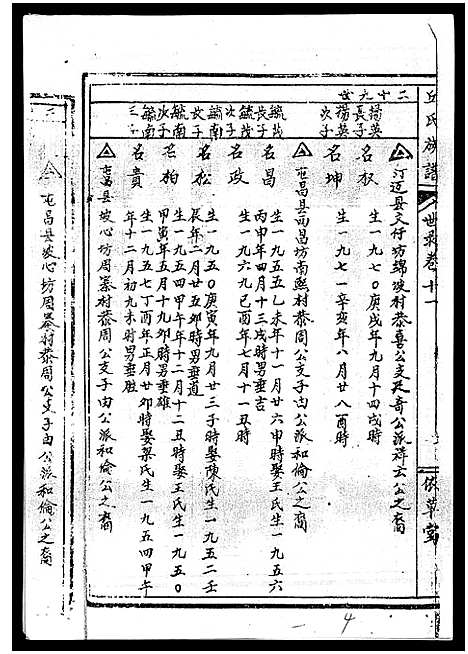 丘氏族譜
世录卷十一
依草堂
二十九世
揚英
長子
揚英
次子
毓茂
長子
毓茂
次子
毓南
長子
毓南
次子
毓南
三子
公支天奇公派祥云公之裔
名权
生一九七0庚戌年九月十四戌時
名坤
生一九七一辛亥年八月廿八酉時
屯昌县西昌坊南熙村恭周公支子由公派和倫公之裔
名昌
生一九五五乙未年十一月廿六申時娶王氏生一九五六
丙申年四月十三戌時男垂吉
名政
生一九六九己酉年七月十一丑時
名松
生一九五0庚寅年九月廿三子時娶陳氏生一九五二壬
辰年二月廿五卯時男垂道
名柏
生一九五四甲午年十二月十二丑時娶王氏生一九五0
甲寅年五月十九卯時男垂雄
名貴
生一九五七丁酉年正月廿卯時娶梁氏生一九五四甲午
年十二月初九未時男垂胜
屯昌县坡心坊周寨村恭周公支子由公派和倫公之裔
屯昌县坡心坊周寨村恭周公支子由公派和倫公之裔
4